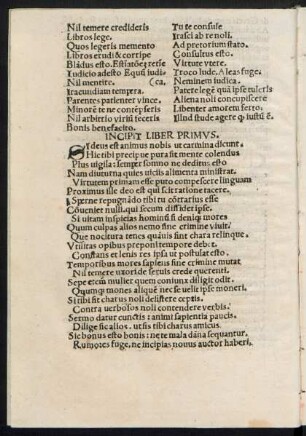 Nil temere credideris
Libros lege.
Quos legeris memento
Libros erudi & corripe
Bládus esto. Estiatõez tetẽe
Iudicio adesto Equũ iudi-
Nil mentire. (ca,
Iracundiam tempera.
Parentes patienter vince.
Minorẽ te ne contẽpseris
Nil arbitrio viriũ feceris
Bonis benefacito.
Tu te consule
Irasci ab re noli.
Ad pretorium stato.
Consultus esto.
Virtute vtere.
Troco lude. Aleas fuge.
Neminem iudica.
Patere legẽ quã ipse tuleris
Aliena noli concupiscere
Libenter amorem ferto.
Illud stude agere q̃ iustũ ẽ.
INCIPIT LIBER PRIMVS.
SI deus est animus nobis ut carmina dicunt.
Hic tibi precipue pura sit mente colendus
Plus uigila: semper somno ne deditus esto.
Nam diuturna quies uiciis alimenta ministrat.
Virtutem primam esse puto compescere linguam
Proximus ille deo est qui scit ratione tacere.
Sperne repugnãdo tibi tu cõtrarius esse
Cõueniet nulli.qui secum dissidet ipse.
Si uitam inspicias hominũ si deniqꝫ mores
Quum culpas alios nemo sine crimine viuit.
Que nocitura tenes quãuis sint chara relinque.
Vtilitas opibus preponi tempore debet.
Constans et lenis res ipsa ut postulat esto.
Temporibus mores sapiens sine crimine mutat
Nil temere uxori de seruis crede querenti.
Sepe etem mulier quem coniunx diligit odit.
Quumqꝫ mones aliquẽ nec se uelit ipse moneri.
Si tibi sit charus noli desistere ceptis.
Contra verbosos noli contendere verbis.
Sermo datur cunctis: animi sapientia paucis.
Dilige sic alios. ut sis tibi charus amicus.
Sic bonus esto bonis: ne te mala dãna sequantur.
Rumores fuge, ne incipias nouus auctor haberi.